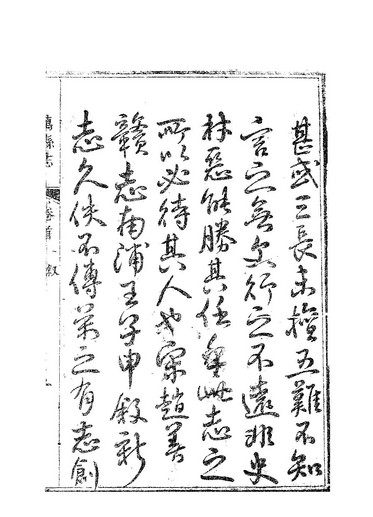 甚或三長未擅五難不知
言之無文行之不遠非史
材惡能勝其任此志之
所以必待其人也宋趙善
贛志南浦王子申敘新
志久佚不傳萬之有志創
萬縣志 卷首 敘